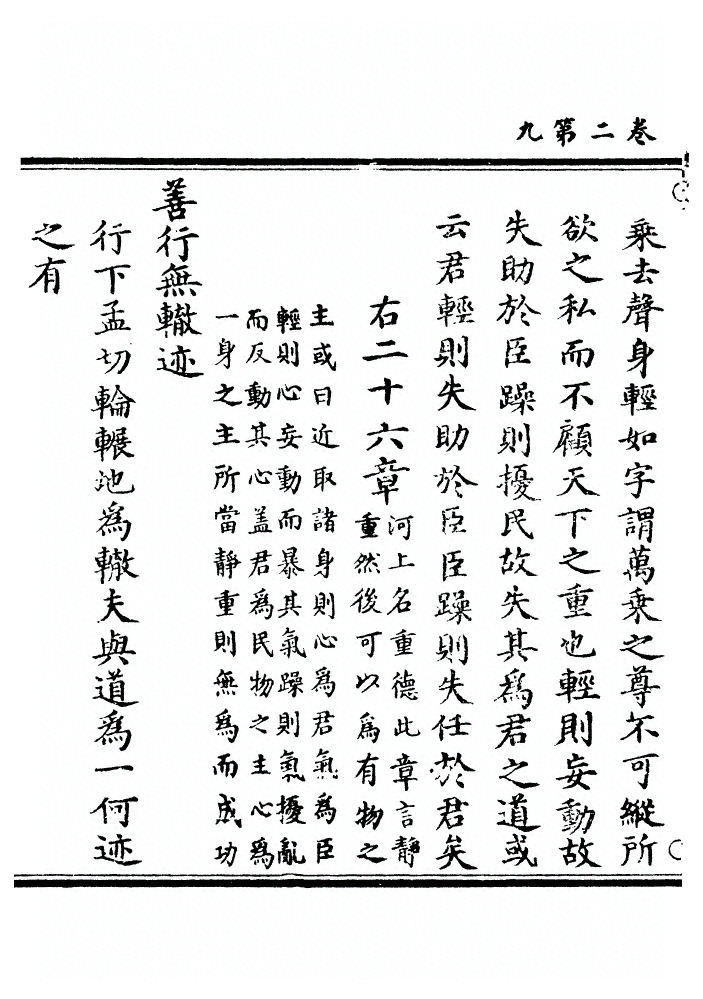 卷二第九
乘去聲身輕如字謂萬乘之尊不可縱所
欲之私而不顧天下之重也輕則妄動故
失助於臣躁則擾民故失其為君之道或
云君輕則失助於臣臣躁則失任於君矣
右二十六章河上名重德此章言靜
重然後可以為有物之
主或曰近取諸身則心為君氣為臣
輕則心妄動而暴其氣躁則氣擾亂
而反動其心盖君為民物之主心為
一身之主所當靜重則無為而成功
善行無轍迹
行下孟切輪輾地為轍夫與道為一何迹
之有